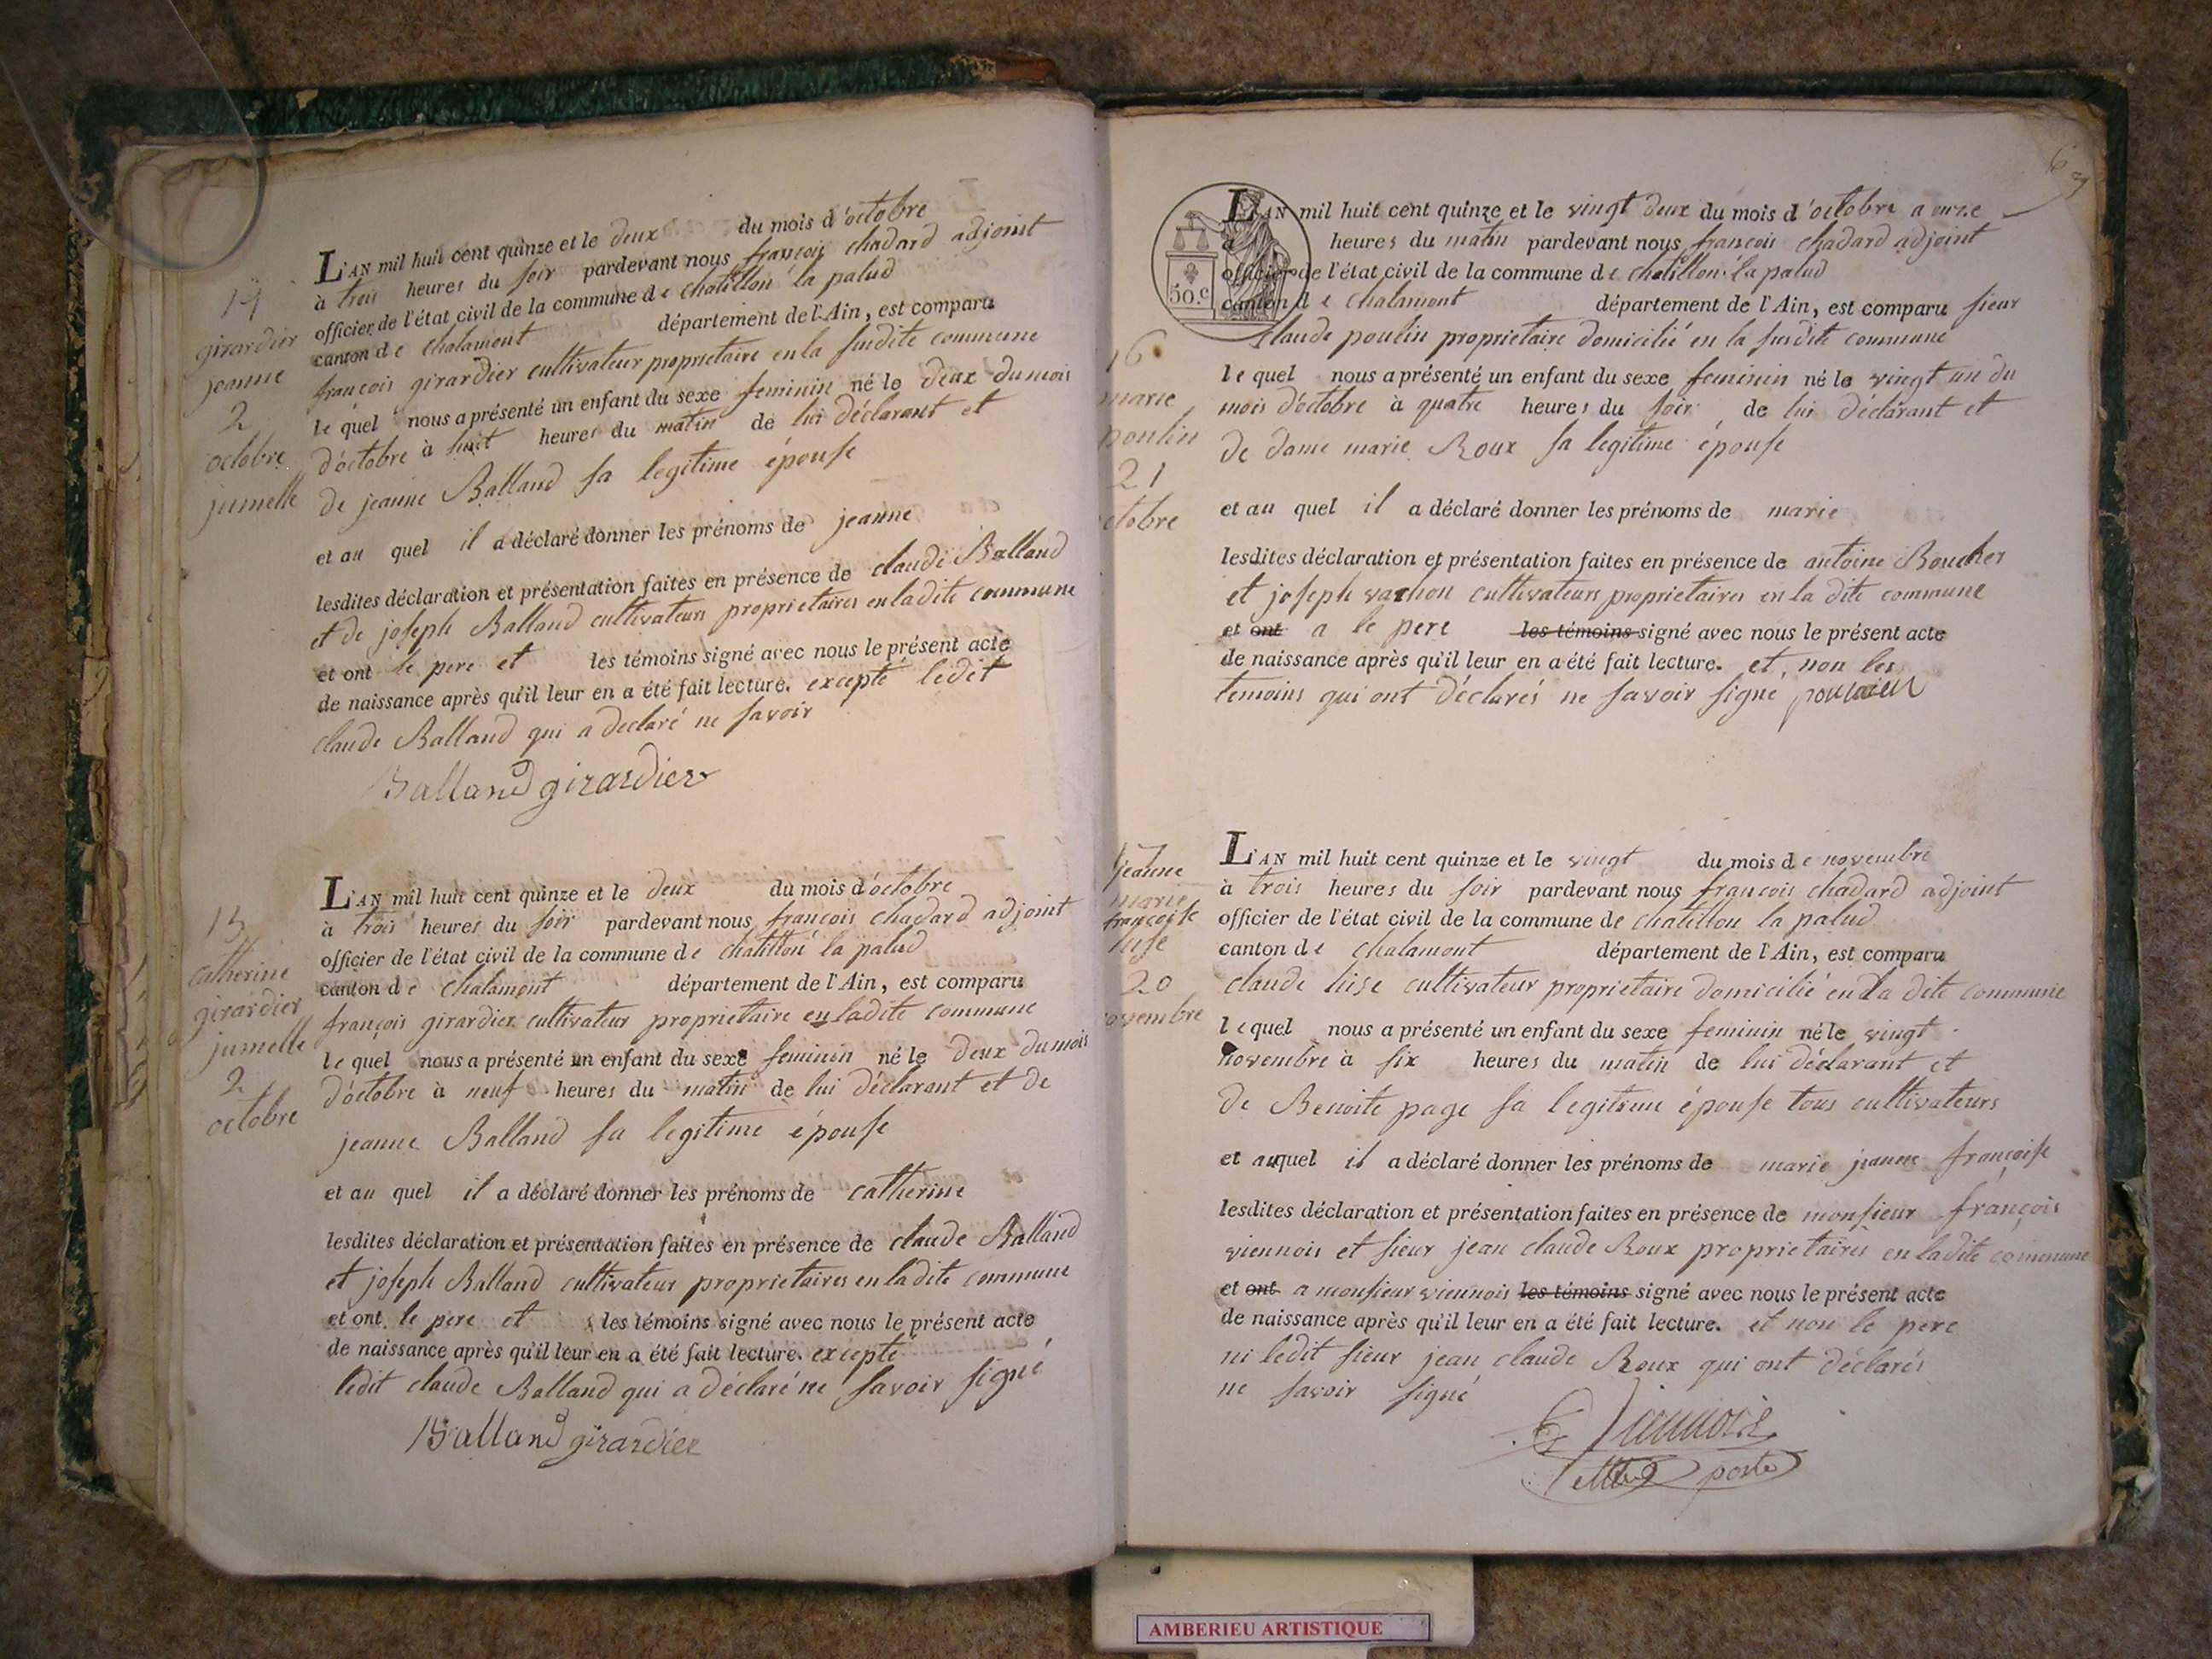 14
girardier
jeanne
2
octobre
jumelle
L'AN mil huit cent quinze et le deux du mois d'octobre
à trois heures du soir pardevant nous françois chadard adjoint
officier de l'état civil de la commune de chatillon la palud
canton de chalamont département de l'Ain, est comparu
françois girardier cultivateur proprietaire en la susdite commune
le quel nous a présenté un enfant du sexe feminin né le deux du mois
d'octobre à huit heures du matin de lui déclarant et
de jeanne Balland sa legitime épouse
et au quel il a déclaré donner les prénoms de jeanne
lesdites déclaration et présentation faites en présence de claude Balland
et de joseph Balland cultivateurs proprietaires en ladite commune
et ont le pere et les témoins signé avec nous le présent acte
de naissance après qu'il leur en a été fait lecture. excepté ledit
claude Balland qui a declaré ne savoir
Balland girardier
15
catherine
girardier
jumelle
2
octobre
L'AN mil huit cent quinze et le deux du mois d'octobre
à trois heures du soir pardevant nous françois chadard adjoint
officier de l'état civil de la commune de chatillon la palud
canton de chalamont département de l'Ain, est comparu
françois girardier cultivateur proprietaire en ladite commune
le quel nous a présenté un enfant du sexe feminin né le deux du mois
d'octobre à neuf heures du matin de lui déclarant et de
jeanne Balland sa legitime épouse
et au quel il a déclaré donner les prénoms de catherine
lesdites déclaration et présentation faites en présence de claude Balland
et joseph Balland cultivateurs proprietaires en ladite commune
et ont le pere et les témoins signé avec nous le présent acte
de naissance après qu'il leur en a été fait lecture. excepté
ledit claude Balland qui a déclaré ne savoir signé
Balland girardier
16
marie
poulin
21
ctobre
50.c
L'AN mil huit cent quinze et le vingt deux du mois d'octobre a onze
à heures du matin pardevant nous françois chadard adjoint
officier de l'état civil de la commune de chatillon la palud
canton de chalamont département de l'Ain, est comparu sieur
claude poulin proprietaire domicilié en la susdite commune
le quel nous a présenté un enfant du sexe feminin né le vingt un du
mois d'octobre à quatre heures du soir de lui déclarant et
de dame marie Roux sa legitime épouse
et au quel il a déclaré donner les prénoms de marie
lesdites déclaration et présentation faites en présence de antoine Boucher
et joseph vachon cultivateurs proprietaires en la dite commune
et ont a le pere les témoins signé avec nous le présent acte
de naissance après qu'il leur en a été fait lecture. et non les
temoins qui ont déclarés ne savoir signé
17
jeanne
marie
françoise
lise
20
ovembre
L'AN mil huit cent quinze et le vingt du mois de novembre
à trois heures du soir pardevant nous françois chadard adjoint
officier de l'état civil de la commune de chatillon la palud
canton de chalamont département de l'Ain, est comparu
claude lise cultivateur proprietaire domicilié en la dite commune
le quel nous a présenté un enfant du sexe feminin né le vingt
novembre à six heures du matin de lui déclarant et
de Benoite page sa legitime épouse tous cultivateurs
et auquel il a déclaré donner les prénoms de marie jeanne françoise
lesdites déclaration et présentation faites en présence de monsieur françois
viennois et sieur jean claude Roux proprietaires en ladite commune
et ont a monsieur viennois les témoins signé avec nous le présent acte
de naissance après qu'il leur en a été fait lecture. et non le pere
ni ledit sieur jean claude Roux qui ont déclarés
ne savoir signé
Viennois
AMBERIEU ARTISTIQUE